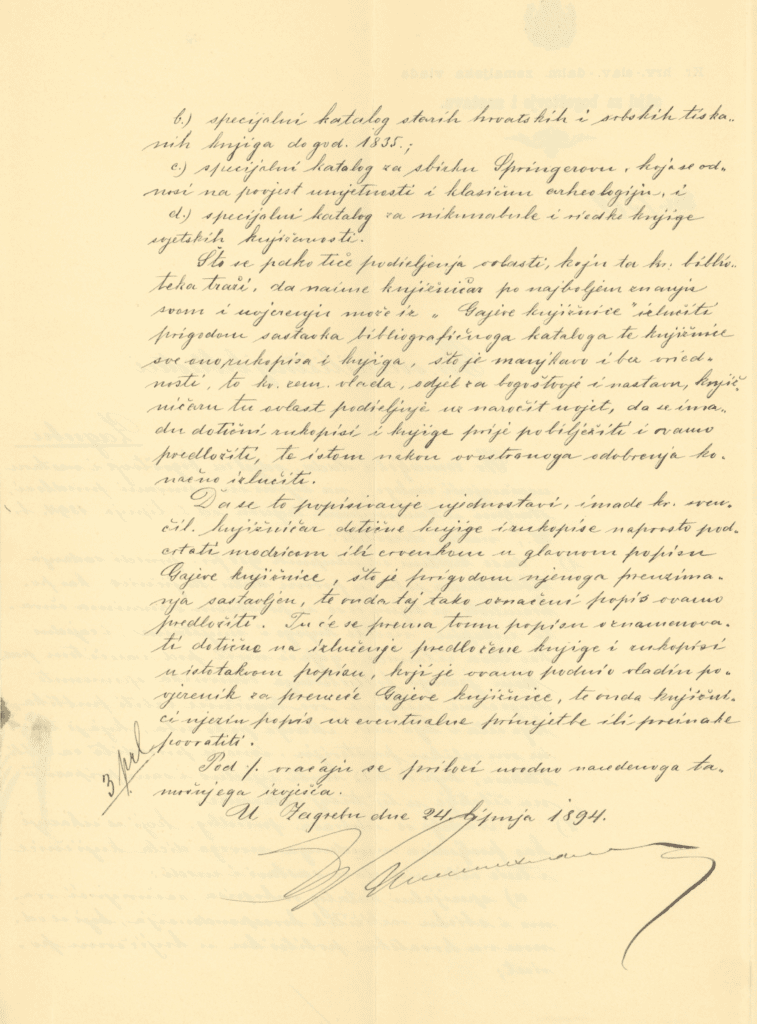 b.) specijalni katalog starih hrvatskih i srbskih tiska-
nih knjiga do god. 1835.;
c.) specijalni katalog za sbirku Springerovu, koja se od-
nosi na povjest umjetnosti i klasičnu arheologiju, i
d.) specijalni katalog za inkunabule i riedke knjige
svjetskih književnosti.
Što se pako tiče podieljenja vlasti, koju ta kr. biblio-
teka traži, da naime knjižničar po najboljem znanju
svom i uvjerenju može iz „Gajeve knjižnice" izlučiti
prigodom sastavka bibliografičnoga kataloga te knjižnice
sve ono rukopisa i knjiga, što je manjkavo i bez vried-
nosti, to kr. zem. vlada, odjel za bogoštovje i nastavu, knjiž-
ničaru tu vlast podieljuje uz naročit uvjet, da se ima-
du dotični rukopisi i knjige prije pobilježiti i ovamo
predložiti, te istom nakon ovostranoga odobrenja ko-
načno izlučiti.
Da se to popisivanje ujednostavi, imade kr. sveu-
čil. knjižničar dotične knjige i rukopise naprosto pod-
crtati modricom ili crvenkom u glavnom popisu
Gajeve knjižnice, što je prigodom njenoga preuzima-
nja sastavljen, te onda taj tako označeni popis ovamo
predložiti. Tu će se prema tomu popisu oznamenova-
ti dotične na izlučenje predložene knjige i rukopisi
u istotakvom popisu, koji je ovamo podnio vladin po-
vjerenik za preuzeće Gajeve knjižnice, te onda knjižni-
ci njezin popis uz eventualne primjetbe ili preinake
povratiti.
3 pril.
Pod /. vraćaju se prilozi uvodno navedenoga ta-
mošnjega izvješća.
U Zagrebu dne 24. lipnja 1894.